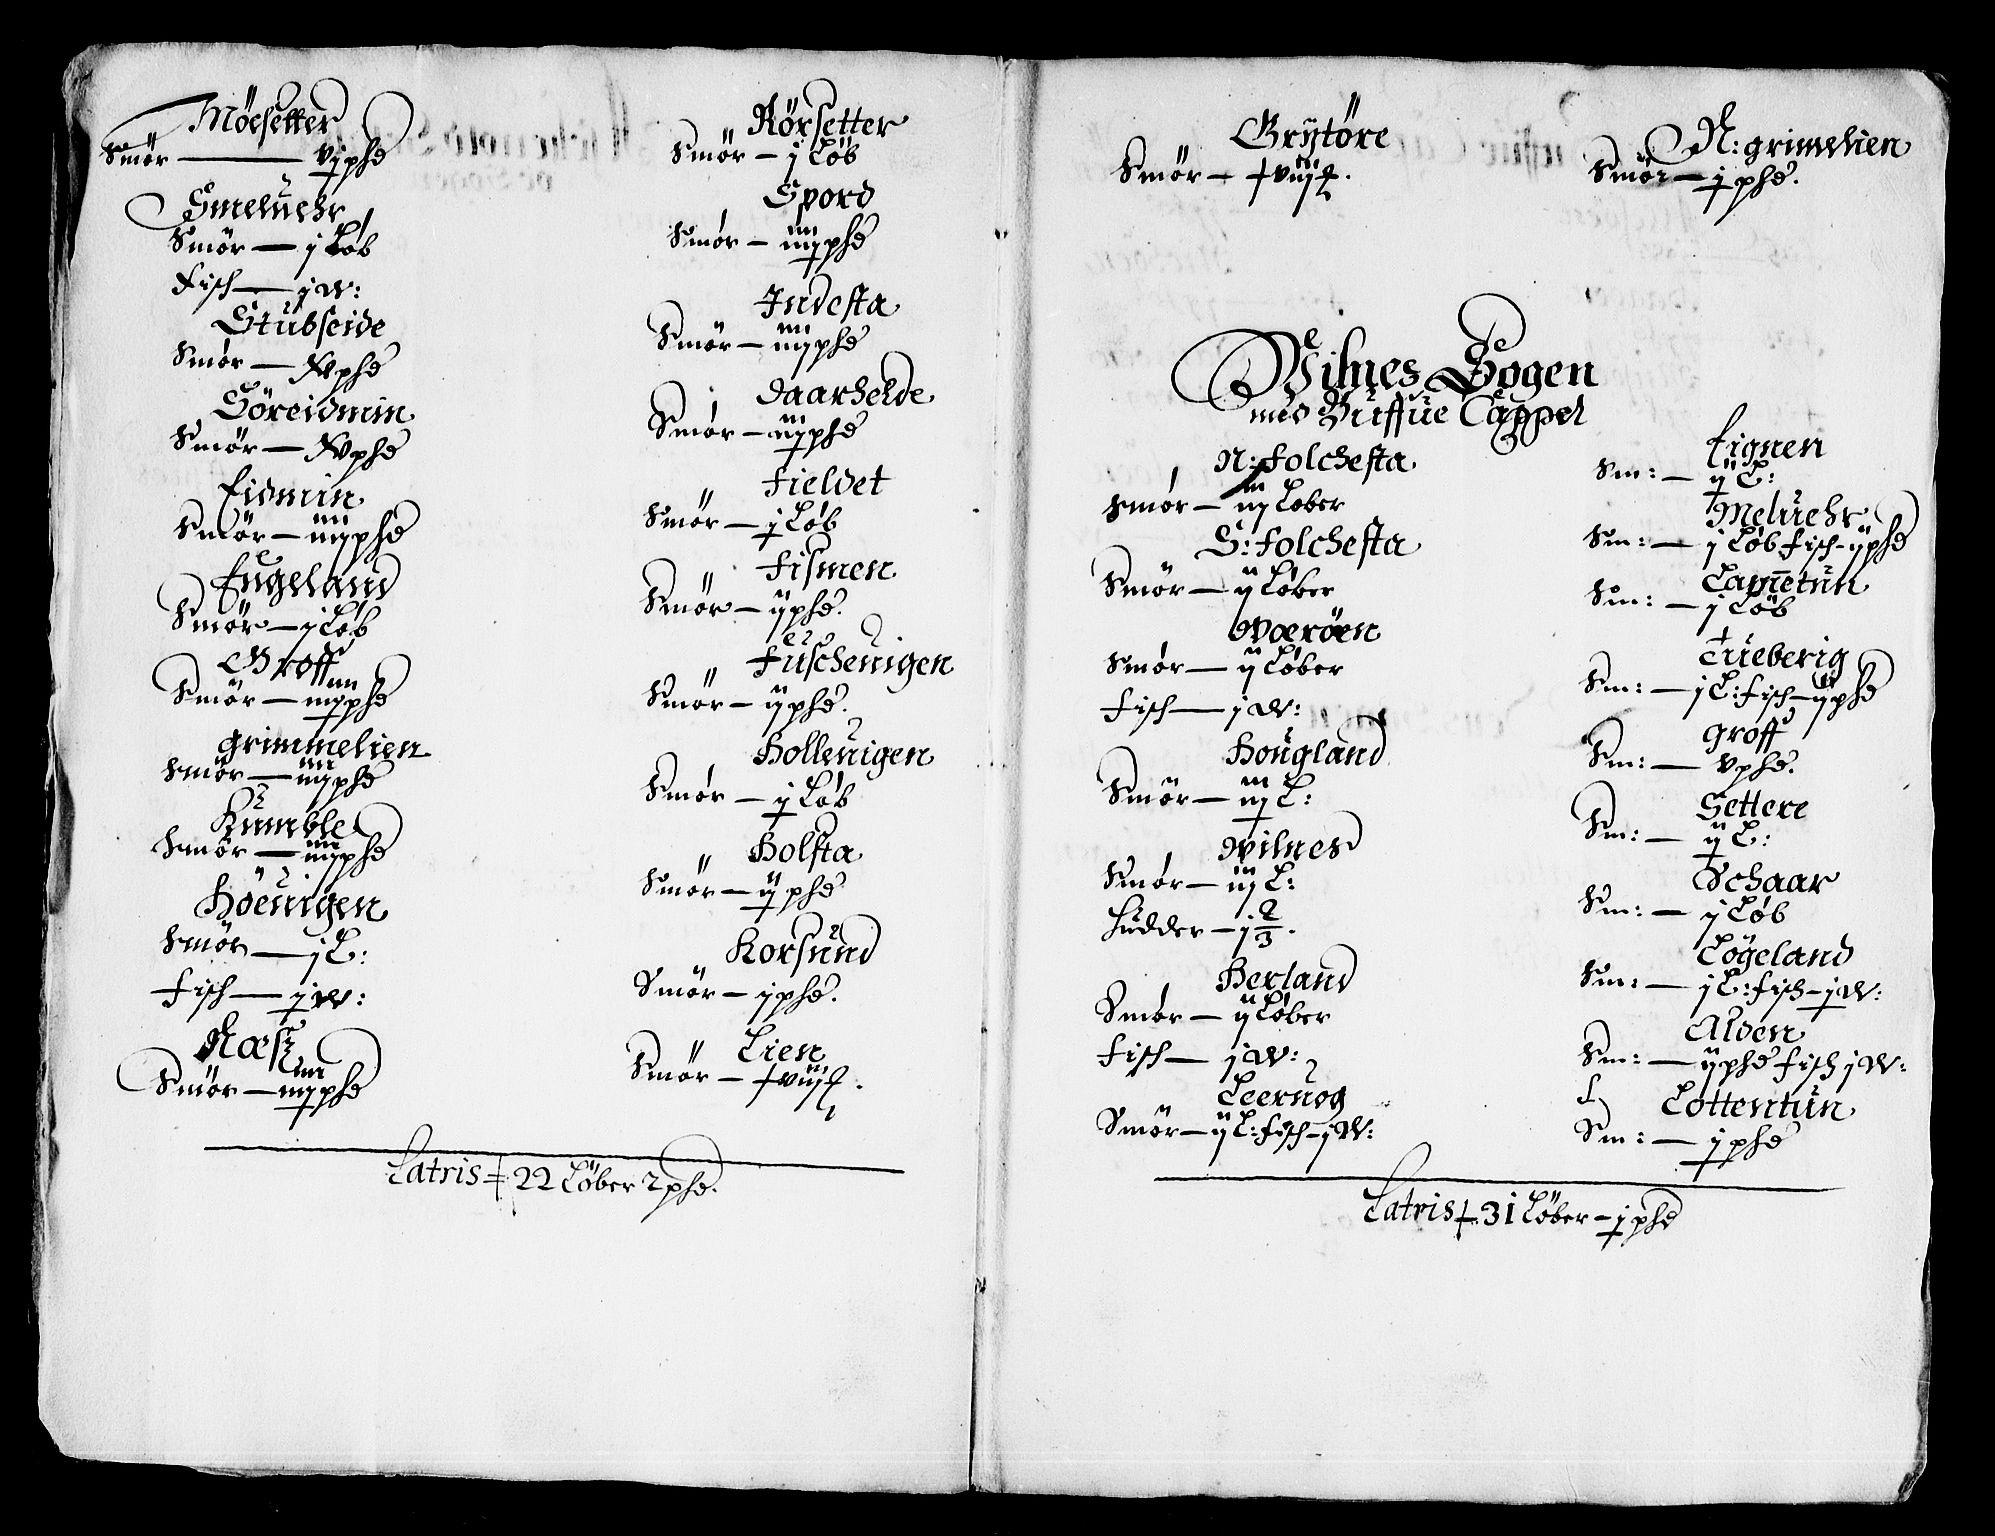 Möesetter
Smör — vj phd
Smeluehr
Smör — j Löb
Fisch — j W:
Stubseide
Smör — xv phd
Söreidmin
Smör — xv phd
Eidmin
Smör — iiij phd
Engeland
Smör — j Löb
Groff
Smör — iiij phd
Grimmelien
Smör — iiij phd
Kumble
Smör — iiij phd
Höeuigen
Smör — j L:
Fisch — j W:
Næss
Smör — iiij phd
Rörsetter
Smör — j Löb
Spord
Smör — iiij phd
Indesta
Smör — iiij phd
Daarhelde
Smör — iiij phd
Fieldet
Smör — j Löb
Eismen
Smör — ij phd.
Fuscheuigen
Smör — ij phd.
Holleuigen
Smör — j Löb
Holsta
Smör — ij phd
Korsund
Smör — j phd.
Lien
Smör —
Latris 22 Löber 2 phd.
Grytöre
Smör —
N: grimelien
Smör — j phd.
Wilnes Sogen
med Buffue Cappel
N: Folchesta
Smör — iij Löber
S: Folchesta
Smör — ij Löber
Wæröen
Smör — ij Löber
Fisch — j W:
Hougland
Smör — iij L:
Wilnes
Smör — iij L:
Hudder — j 2/3.
Herland
Smör — ij Löber
Fisch — j W:
Leeruog
Smör — ij L: Fisch — j W:
Eignen
Sm: — ij L:
Meluehr
Sm: — j Löb Fisch — ij phd
Lammetun
Sm: — j Löb
Tueberig
Sm: — j L: Fisch — ij phd
Groff
Sm: — v phd.
Settere
Sm: — ij L:
Schaar
Sm: — j Löb
Lögeland
Sm: — j L: Fisch — j W:
Alden
Sm: — ij phd Fisch j W:
L. Lottentun
Sm: — j phd
Latris 31 Löber — j phd